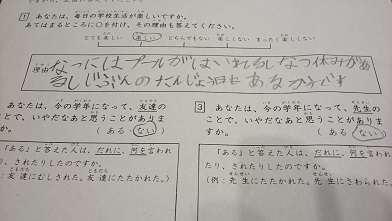 1 あなたは、毎日の学校生活が楽しいですか。
あてはまるところに○を付け、その理由も答えてください。
とても楽しい 楽しい どちらでもない 楽しくない まったく楽しくない
理由 なつにはプールがはいれるしなつ休みがあ
るしじぶんのたんじょう日もあるからです
あなたは、今の学年になって、友達の
ことで、いやだなあと思うことがありま
か。 (ある ・ ない)
「ある」と答えた人は、だれに、何を言われ
、されたりしたのですか。
:友達にむしされた。友達にたたかれた。)
3 あなたは、今の学年になって、先生の
ことで、いやだなあと思うことがありま
か。 (ある ・ ない)
「ある」と答えた人は、だれに、何を言わ
たり、されたりしたのですか。
(例:先生にたたかれた。先生にさわられた。